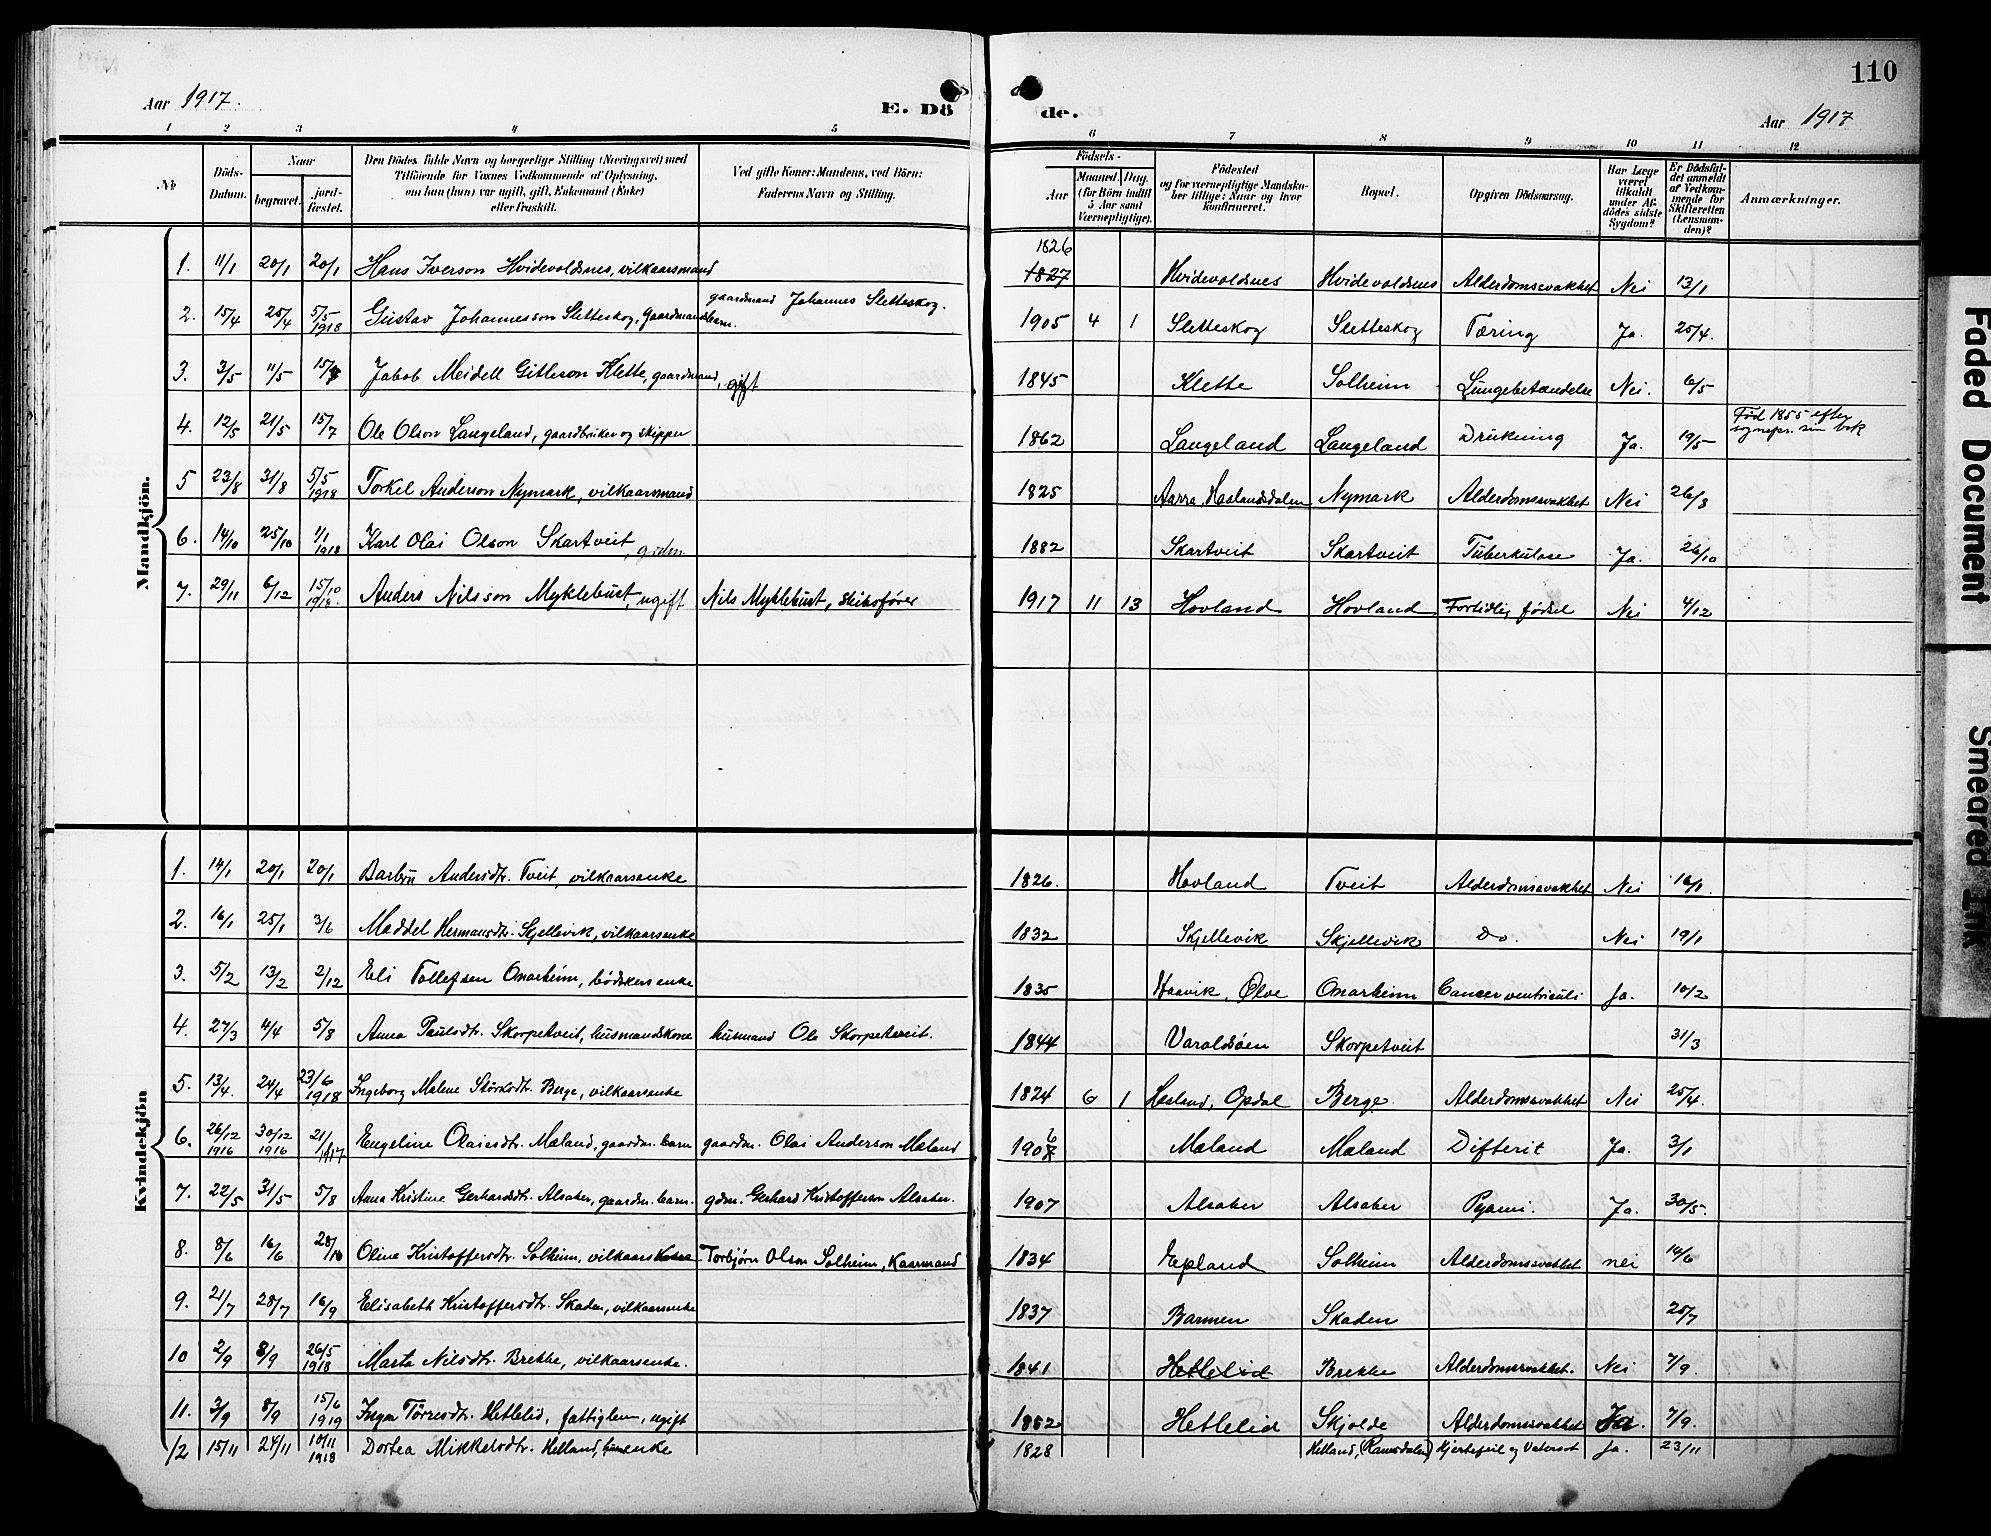 110
Aar 1917.
E. Dö
de.
Aar 1917
1 2 3 4 5 6 7 8 9 10 11 12
No
Döds-Datum.
Naar
begravet.
jordfæstet.
Den Dödes fulde Navn og borgerlige Stilling (Næringsvei) med
Tilföiende for Voxnes Vedkommende af Oplysning,
om han (hun) var ugift, gift, Enkemand (Enke)
eller fraskilt.
Ved gifte Koner: Mandens, ved Börn:
Faderens Navn og Stilling.
Födsels-
Aar
Maaned. Dag.
(for Börn indtil
5 Aar samt
Værnepligtige).
Födested
og for værnepligtige Mandskaber tillige: Naar og hvor
konfirmeret.
Bopæl.
Opgiven Dödsaarsag.
Har Læge
været
tilkaldt
under Afdödes sidste
Sygdom?
Er Dödsfaldet anmeldt
af Vedkommende for
Skifteretten
(Lensmanden)?
Anmærkninger.
Mandkjön.
1. 11/1 20/1 20/1 Hans Iverson Hvidevoldsnes, vilkaarsmand 1826 1827 Hvidevoldsnes Hvidevoldsnes Alderdomssvakhet Nei 13/1
2. 15/4 25/4 5/5 1918 Gustav Johannesson Sletteskog, Gaardmandsbarn. gaardmand Johannes Sletteskog. 1905 4 1 Sletteskog Sletteskog Tæring Ja. 25/4.
3. 3/5 11/5 15/7 Jakob Meidell Gitleson Klette, gaardmand, gift 1845 Klette Solheim Lungebetændelse Nei. 6/5
4. 12/5 21/5 15/7 Ole Olson Langeland, gaardbruker og skipper 1862 Langeland Langeland Drukning Ja. 19/5 Fød 1855 efter
5 23/8 31/8 5/5 1918 Torkel Anderson Nymark, vilkaarsmand 1825 Aarra, Haalandsdalen Nymark Alderdomssvakhet Nei 26/8
6. 14/10 25/10 1/1 1918 Karl Olai Olson Skartveit, 1882 Skartveit Skartveit Tuberkulose Ja. 26/10
7. 29/11 6/12 15/10 1918. Anders Nilsson Myklebust, ugift Nils Myklebust, skibsfører 1917 11 13 Hovland Hovland Fortidlig fødsel Nei 4/12
Kvindekjön
1. 14/1 20/1 20/1 Barbru Andersdtr. Tveit, vilkaarsenke 1826. Hovland Tveit Alderdomssvakhet Nei 16/1.
2. 16/1 25/1 3/6 Maddel Hermansdtr. Skjellevik, vilkaarsenke 1832 Skjellevik Skjellevik Do. Nei 19/1
3. 5/2 13/2 2/12 Eli Tollefsen Onarheim, bødkersenke 1835 Haavik, Ølve Onarheim Cancer ventriculi Ja. 10/2
4. 27/3 4/4 5/8 Anna Paulsdtr. Skorpetveit, husmandskone husmand Ole Skorpetveit. 1844 Varaldsøen Skorpetveit 31/3
5. 13/4. 24/4 23/6 1918 Ingeborg Malene Størksdtr. Berge, vilkaarsenke 1824 6 1 Haaland, Opdal Berge Alderdomssvakhet Nei 25/4.
6. 26/12 1916 30/12 1916 21/1 1917 Engeline Olaiesdtr. Maland, gaardm. barn gaardm. Olai Anderson Maland 1906 Maland Maland Difterit Ja. 3/1
7. 22/5 31/5 5/8 Anna Kristine Gerhardsdtr. Alsaker, gaardm. barn. gdm. Gerhard Kristofferson Alsaker. 1907 Alsaker Alsaker Pyæmi. Ja. 30/5.
8. 8/6 16/6 28/10 Oline Kristoffersdtr. Solheim, vilkaarskone Torbjørn Olson Solheim, Kaarmand 1834 Epland Solheim Alderdomssvakhet nei 14/6
9. 21/7 28/7 16/9 Elisabeth Kristoffersdtr. Skaden, vilkaarsenke 1837 Barmen Skaden 25/7
10 2/9 8/9 26/5 1918 Marta Nilsdtr. Brekke, vilkaarsenke. 1841 Hetleliid Brekke Alderdomssvakhet. Nei 7/9.
11. 3/9 8/9 15/6 1919 Inga Torresdtr. Hetlelid, fattiglem, ugift 1852 Hetlelid Skjolde Alderdomssvakhet Ja. 7/9.
12 15/11 24/11 10/11 1918 Dortea Mikkelsdtr. Helland, enke 1828 Helland, (Ramsdalen) Hjertefeil og Vatersot Ja. 23/11
Faded Document
Smeared Ink